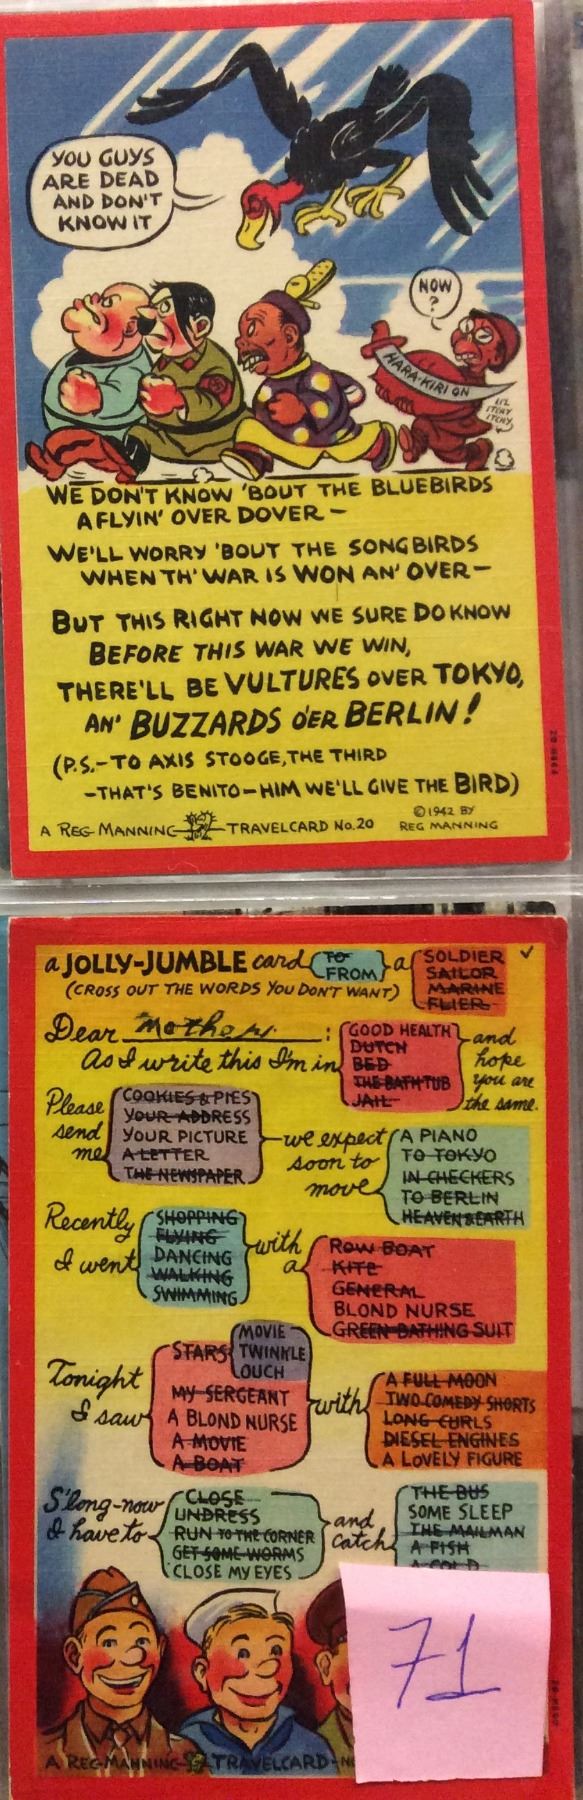 YOU GUYS
ARE DEAD
AND DON'T
KNOW IT
NOW
?
HARA-KIRI ON
LI'L
ITCHY
ITCHY
WE DON'T KNOW 'BOUT THE BLUEBIRDS
A FLYIN' OVER DOVER —
WE'LL WORRY 'BOUT THE SONGBIRDS
WHEN TH' WAR IS WON AN' OVER —
BUT THIS RIGHT NOW WE SURE DO KNOW
BEFORE THIS WAR WE WIN,
THERE'LL BE VULTURES OVER TOKYO,
AN' BUZZARDS O'ER BERLIN!
(P.S.-TO AXIS STOOGE, THE THIRD
-THAT'S BENITO-HIM WE'LL GIVE THE BIRD)
A REG MANNING TRAVELCARD No.20
©1942 BY
REG MANNING
a JOLLY-JUMBLE card TO FROM a SOLDIER
SAILOR
MARINE
FLIER
(CROSS OUT THE WORDS YOU DON'T WANT)
Dear Mother:
As I write this I'm in
GOOD HEALTH
DUTCH
BED
THE BATH TUB
JAIL
and
hope
you are
the same.
Please
send
me
COOKIES & PIES
YOUR ADDRESS
YOUR PICTURE
A LETTER
THE NEWSPAPER
we expect
soon to
move
A PIANO
TO TOKYO
IN CHECKERS
TO BERLIN
HEAVEN & EARTH
Recently
I went
SHOPPING
FLYING
DANCING
WALKING
SWIMMING
with
a
ROW BOAT
KITE
GENERAL
BLOND NURSE
GREEN BATHING SUIT
Tonight
I saw
STARS
MOVIE
TWINKLE
OUCH
MY SERGEANT
A BLOND NURSE
A MOVIE
A BOAT
with
A FULL MOON
TWO COMEDY SHORTS
LONG CURLS
DIESEL ENGINES
A LOVELY FIGURE
S'long-now
I have to
CLOSE
UNDRESS
RUN TO THE CORNER
GET SOME WORMS
CLOSE MY EYES
and
catch
THE BUS
SOME SLEEP
THE MAILMAN
A FISH
A COLD
71
A REG MANNING TRAVELCARD